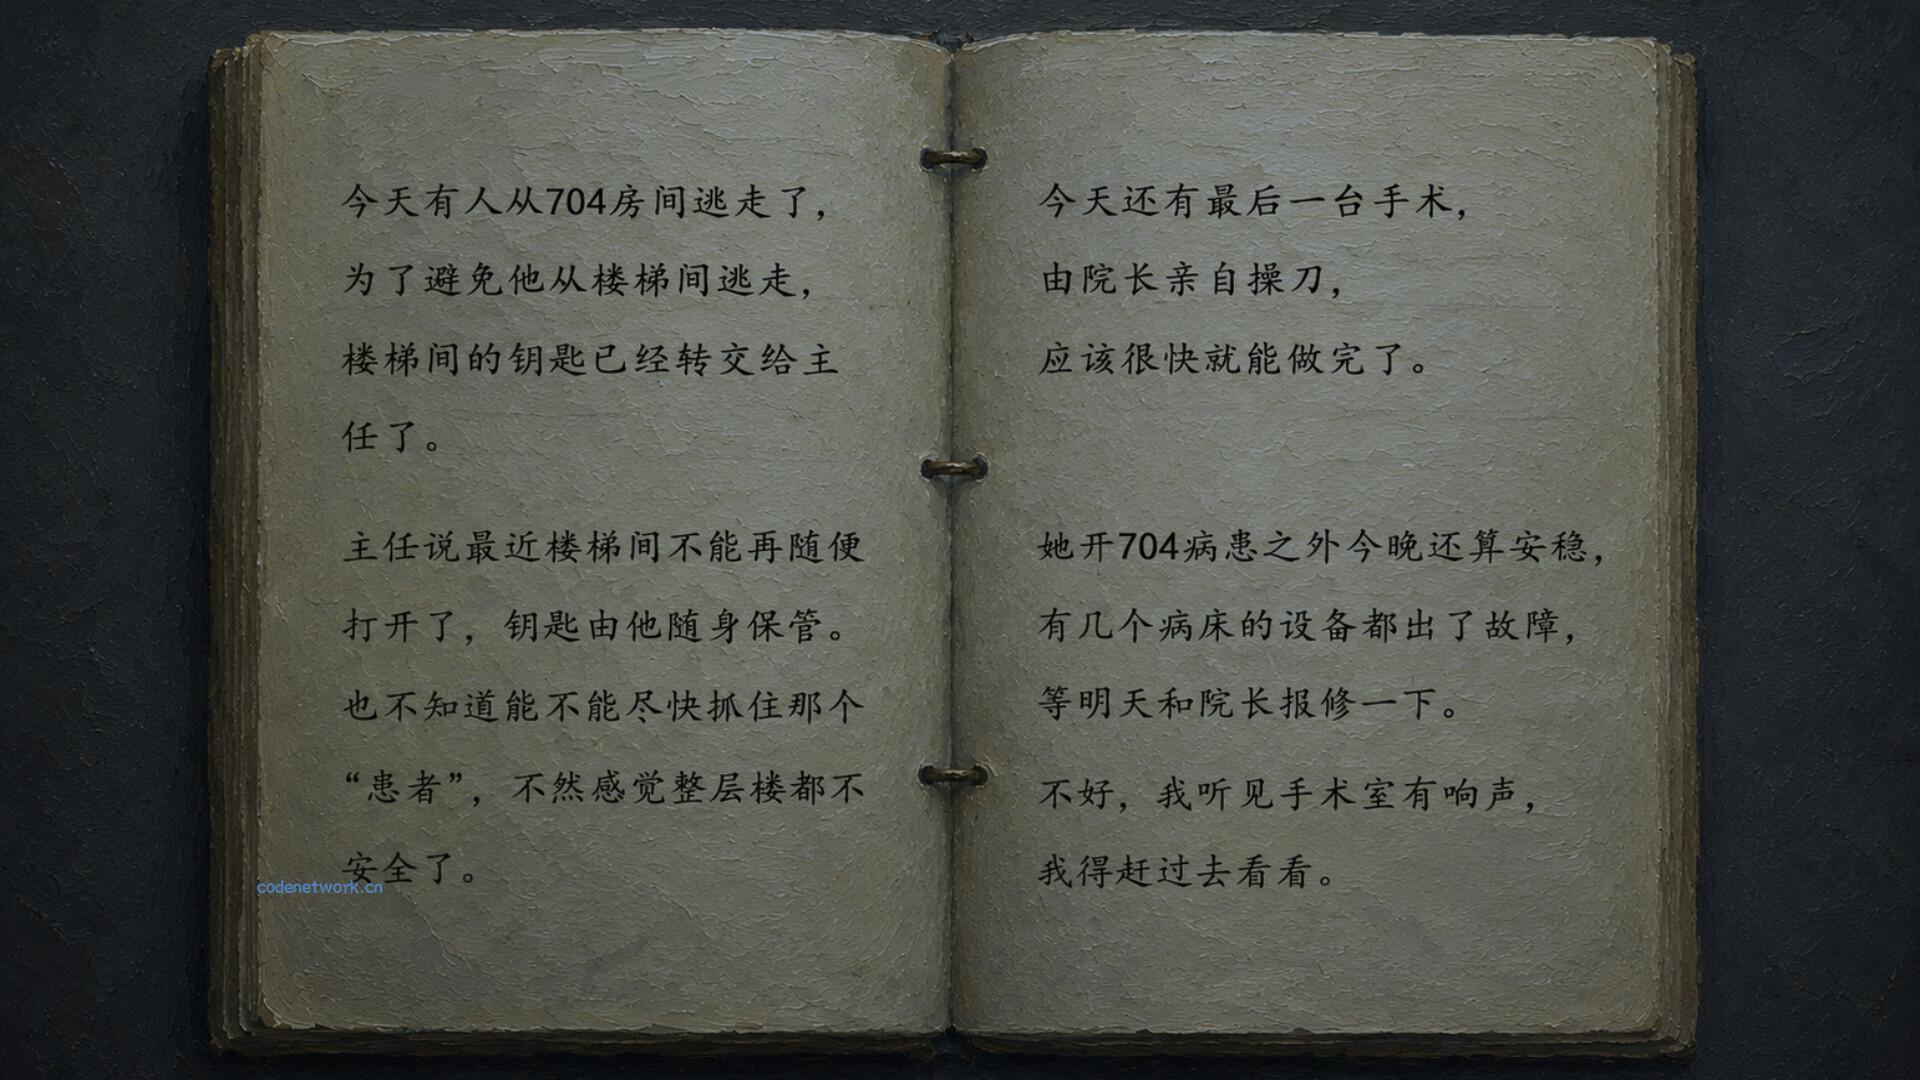 今天有人从704房间逃走了，
为了避免他从楼梯间逃走，
楼梯间的钥匙已经转交给主
任了。
主任说最近楼梯间不能再随便
打开了，钥匙由他随身保管。
也不知道能不能尽快抓住那个
“患者”，不然感觉整层楼都不
安全了。
codenetwork.cn
今天还有最后一台手术，
由院长亲自操刀，
应该很快就能做完了。
她开704病患之外今晚还算安稳，
有几个病床的设备都出了故障，
等明天和院长报修一下。
不好，我听见手术室有响声，
我得赶过去看看。